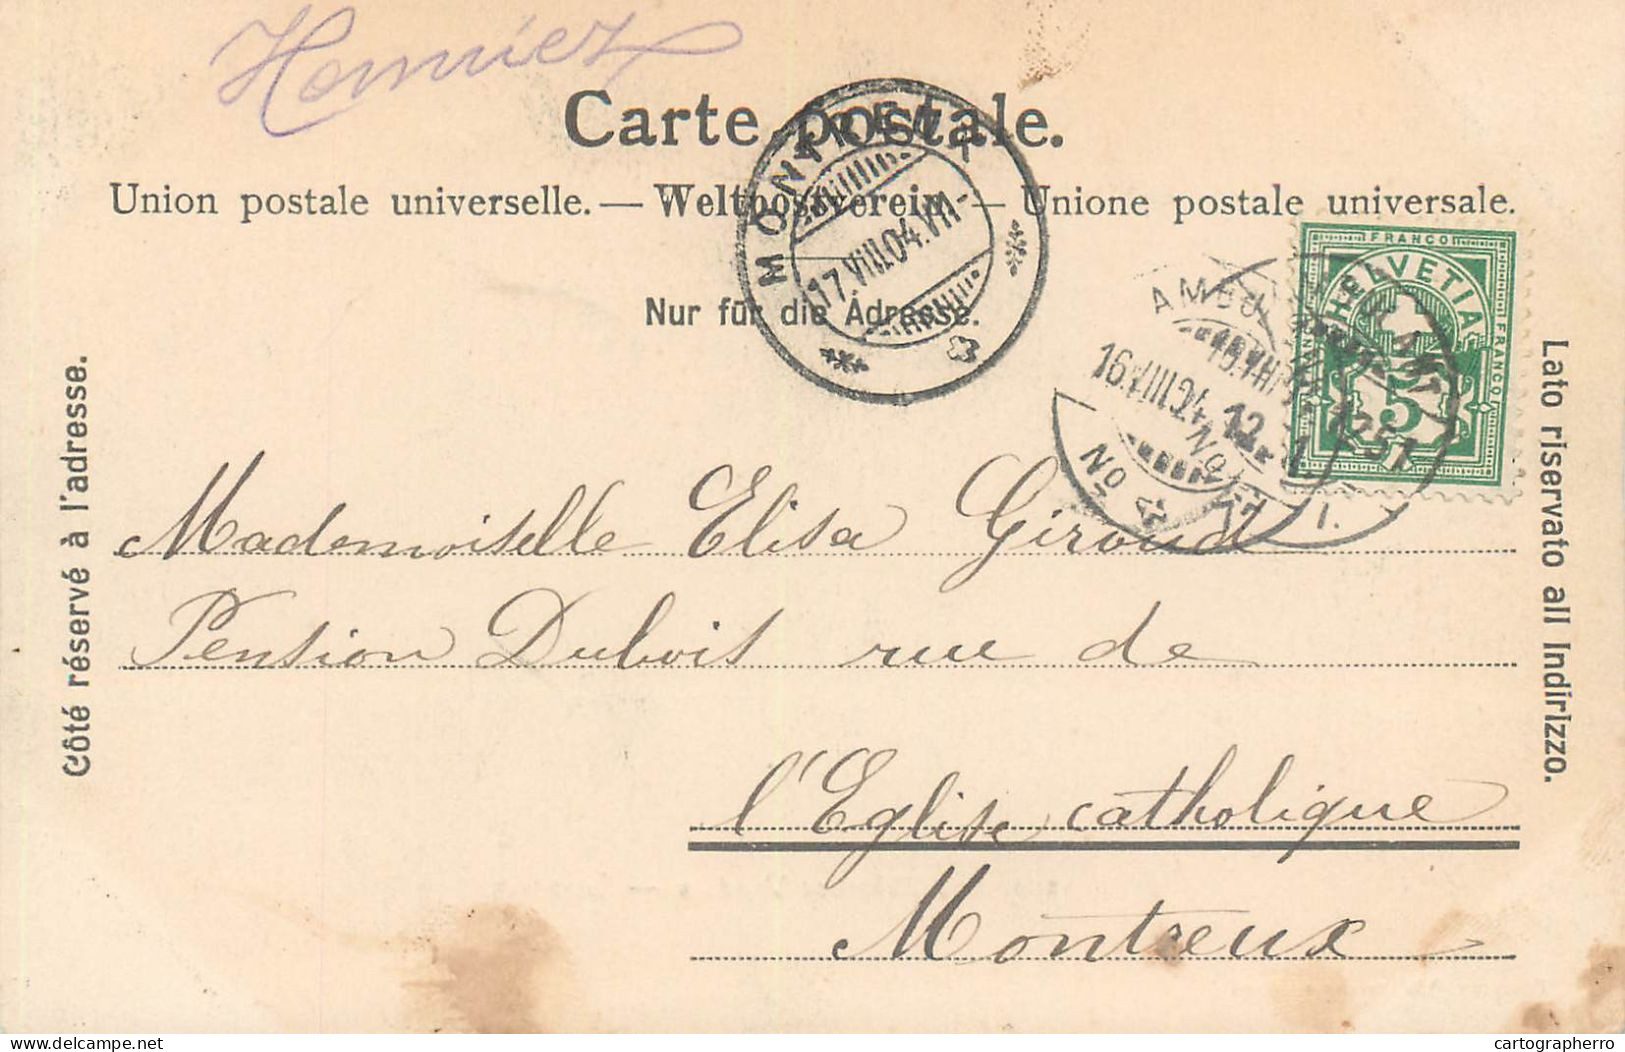 Henniez
Carte postale.
Union postale universelle. — Weltpostverein — Unione postale universale.
Nur für die Adresse.
MONTREUX
17.VIII.04.VII-
AMBULANT
16.VIII.04
12
No
1251
FRANCO
HELVETIA
FRANCO
FRANCO
5
Côté réservé à l'adresse.
Lato riservato all Indirizzo.
Mademoiselle Elisa Giroud
Pension Dubois rue de
l'Eglise catholique
Montreux
delcampe.net
cartographerro